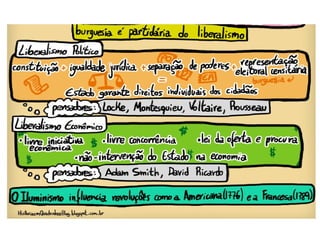 burguesia é partidária do liberalismo
Liberalismo Político
constituição + igualdade jurídica + separação de poderes + representação
eleitoral censitária
burguesia
=
Estado garante direitos individuais dos cidadãos
pensadores: Locke, Montesquieu, Voltaire, Rousseau
Liberalismo Econômico
• livre iniciativa • livre concorrência • lei da oferta e procura
econômica
• não-intervenção do Estado na economia
pensadores: Adam Smith, David Ricardo
O Iluminismo influencia revoluções como a Americana (1776) e a Francesa (1789)